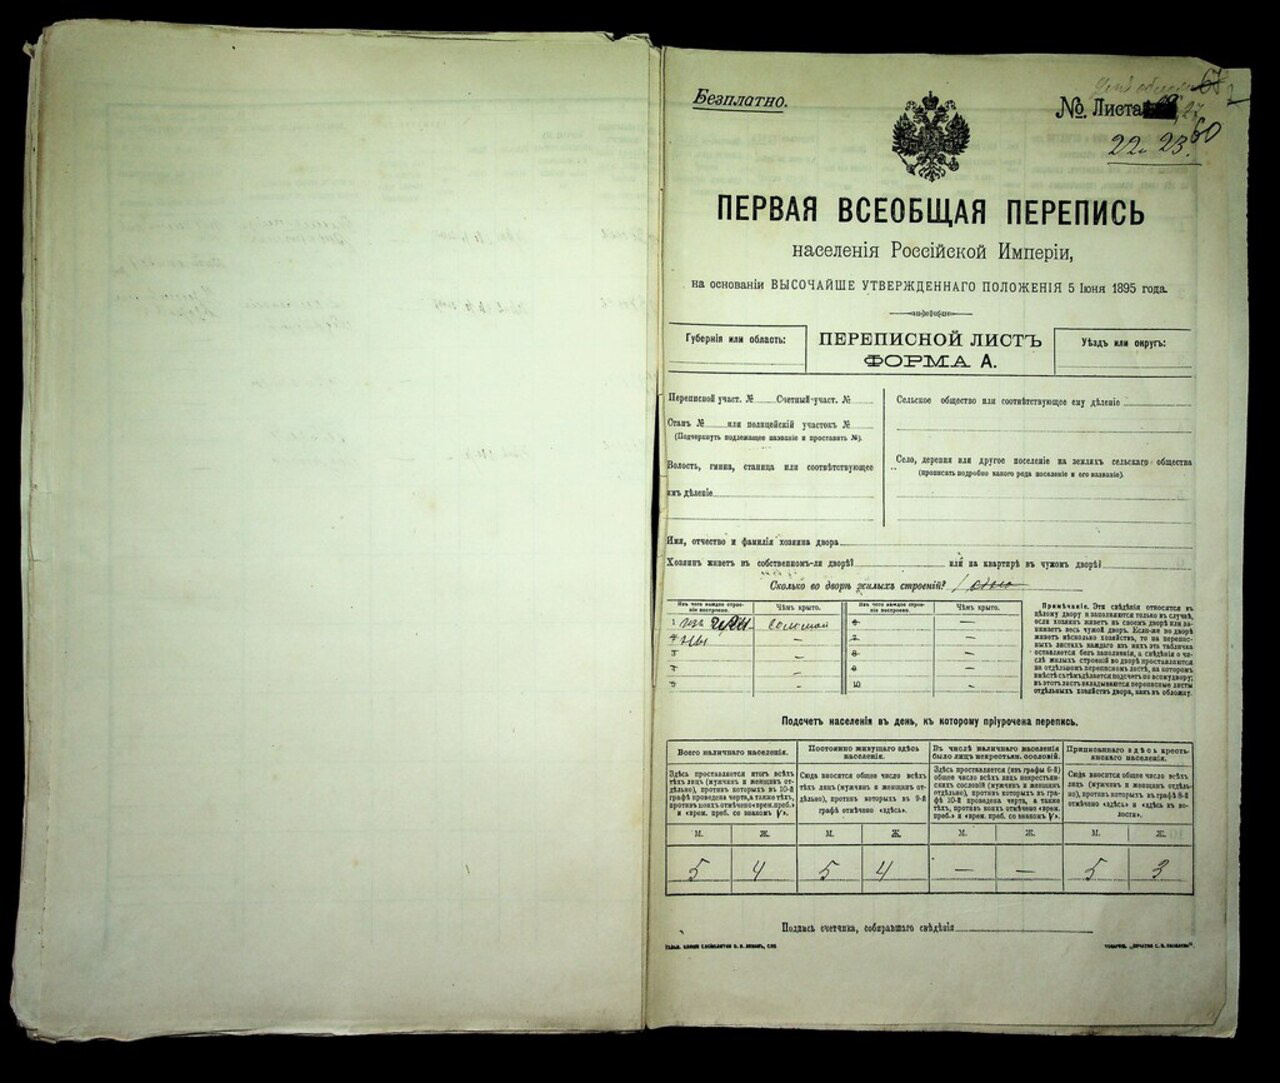 Безплатно.
№. Листа 27
22 и 23. 60
ПЕРВАЯ ВСЕОБЩАЯ ПЕРЕПИСЬ
населенія Россійской Имперіи,
на основаніи ВЫСОЧАЙШЕ УТВЕРЖДЕННАГО ПОЛОЖЕНІЯ 5 Іюня 1895 года.
Губернія или область:
ПЕРЕПИСНОЙ ЛИСТЪ
ФОРМА А.
Уѣздъ или округъ:
Переписной участ. № Счетный участ. №
Станъ № или полицейскій участокъ №
(Подчеркнуть подлежащее названіе и проставить №).
Волость, гмина, станица или соотвѣтствующее
имъ дѣленіе
Сельское общество или соотвѣтствующее ему дѣленіе
Село, деревня или другое поселеніе на земляхъ сельскаго общества
(прописать подробно какого рода поселеніе и его названіе).
Имя, отчество и фамилія хозяина двора
Хозяинъ живетъ въ собственномъ-ли дворѣ? или на квартирѣ въ чужомъ дворѣ?
Сколько во дворѣ жилыхъ строеній? 1
Изъ чего каждое строеніе построено.
Чѣмъ крыто.
Изъ чего каждое строеніе построено.
Чѣмъ крыто.
1 изъ соломой 6 —
2 — 7 —
3 — 8 —
4 — 9 —
5 — 10 —
Примѣчаніе. Эти свѣдѣнія относятся къ
цѣлому двору и заполняются только въ случаѣ,
если хозяинъ живетъ въ своемъ дворѣ или за-
нимаетъ весь чужой дворъ. Если-же во дворѣ
живетъ нѣсколько хозяйствъ, то на перепис-
ныхъ листахъ каждаго изъ нихъ эта табличка
оставляется безъ заполненія, а свѣдѣнія о чи-
слѣ жилыхъ строеній во дворѣ проставляются
на отдѣльномъ переписномъ листѣ, на которомъ
вмѣстѣ съ тѣмъ дѣлается подсчетъ по всему двору;
въ этотъ листъ вкладываются переписные листы
отдѣльныхъ хозяйствъ двора, какъ въ обложку.
Подсчетъ населенія въ день, къ которому пріурочена перепись.
Всего наличнаго населенія.
Здѣсь проставляется итогъ всѣхъ
тѣхъ лицъ (мужчинъ и женщинъ от-
дѣльно), противъ которыхъ въ 10-й
графѣ проведена черта, а также тѣхъ,
противъ коихъ отмѣчено «врем. преб.»
и «врем. преб. со знакомъ V».
Постоянно живущаго здѣсь
населенія.
Сюда вносится общее число всѣхъ
тѣхъ лицъ (мужчинъ и женщинъ от-
дѣльно), противъ которыхъ въ 9-й
графѣ отмѣчено «здѣсь».
Въ числѣ наличнаго населенія
было лицъ некрестьян. сословій.
Здѣсь проставляется (изъ графы 6-й)
общее число всѣхъ лицъ некрестьян-
скихъ сословій (мужчинъ и женщинъ
отдѣльно), противъ которыхъ въ гра-
фѣ 10-й проведена черта, а также
тѣхъ, противъ коихъ отмѣчено «врем.
преб.» и «врем. преб. со знакомъ V».
Приписаннаго здѣсь кресть-
янскаго населенія.
Сюда вносится общее число всѣхъ
лицъ (мужчинъ и женщинъ отдѣль-
но), противъ которыхъ въ графѣ 8-й
отмѣчено «здѣсь» и «здѣсь въ во-
лости».
М. Ж. М. Ж. М. Ж. М. Ж.
5 4 5 4 — — 5 3
Подпись счетчика, собиравшаго свѣдѣнія